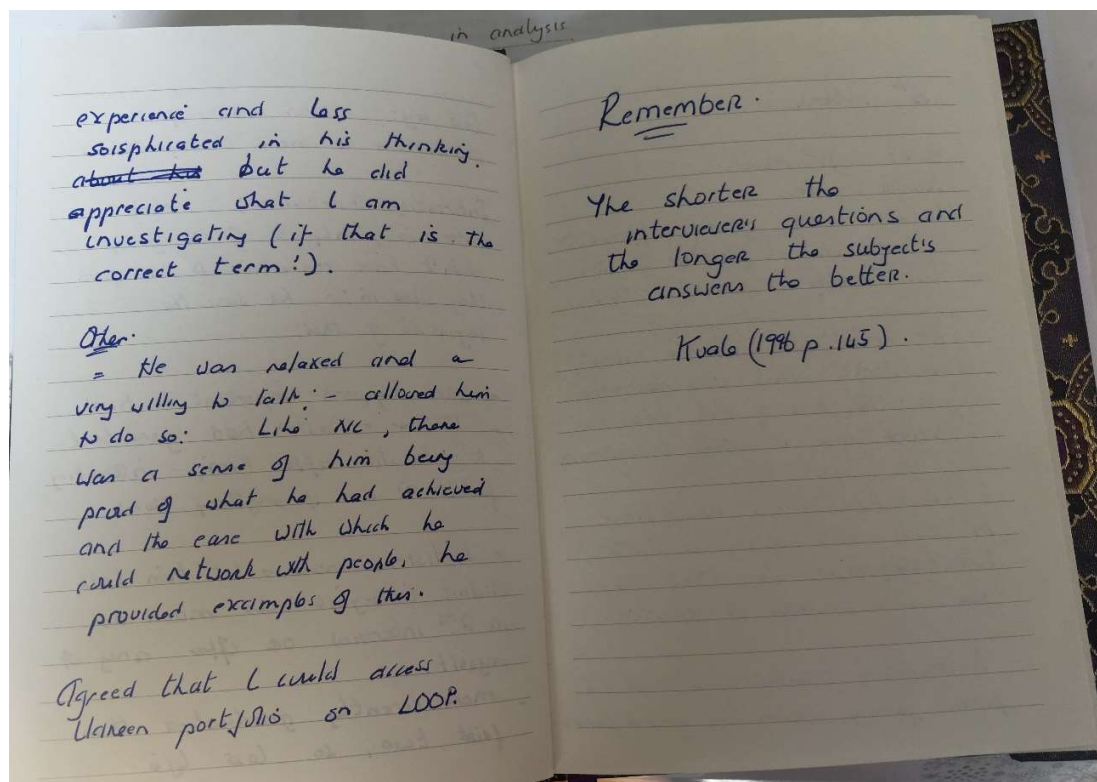 in analysis
experience and less
soisphicated in his thinking.
about his but he did
appreciate what I am
investigating (if that is the
correct term!).
Other.
= He was relaxed and a
very willing to talk: - allowed him
to do so: Like NC, there
was a sense of him being
proud of what he had achieved
and the ease with which he
could network with people, he
provided examples of this.
Agreed that I could access
portfolio on LOOP.
Remember.
The shorter the
interviewer's questions and
the longer the subject's
answers the better.
Kvale (1996 p.145).